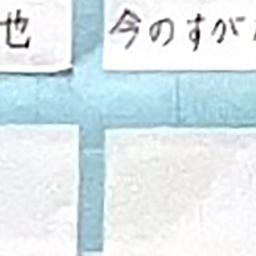 也
今のすが